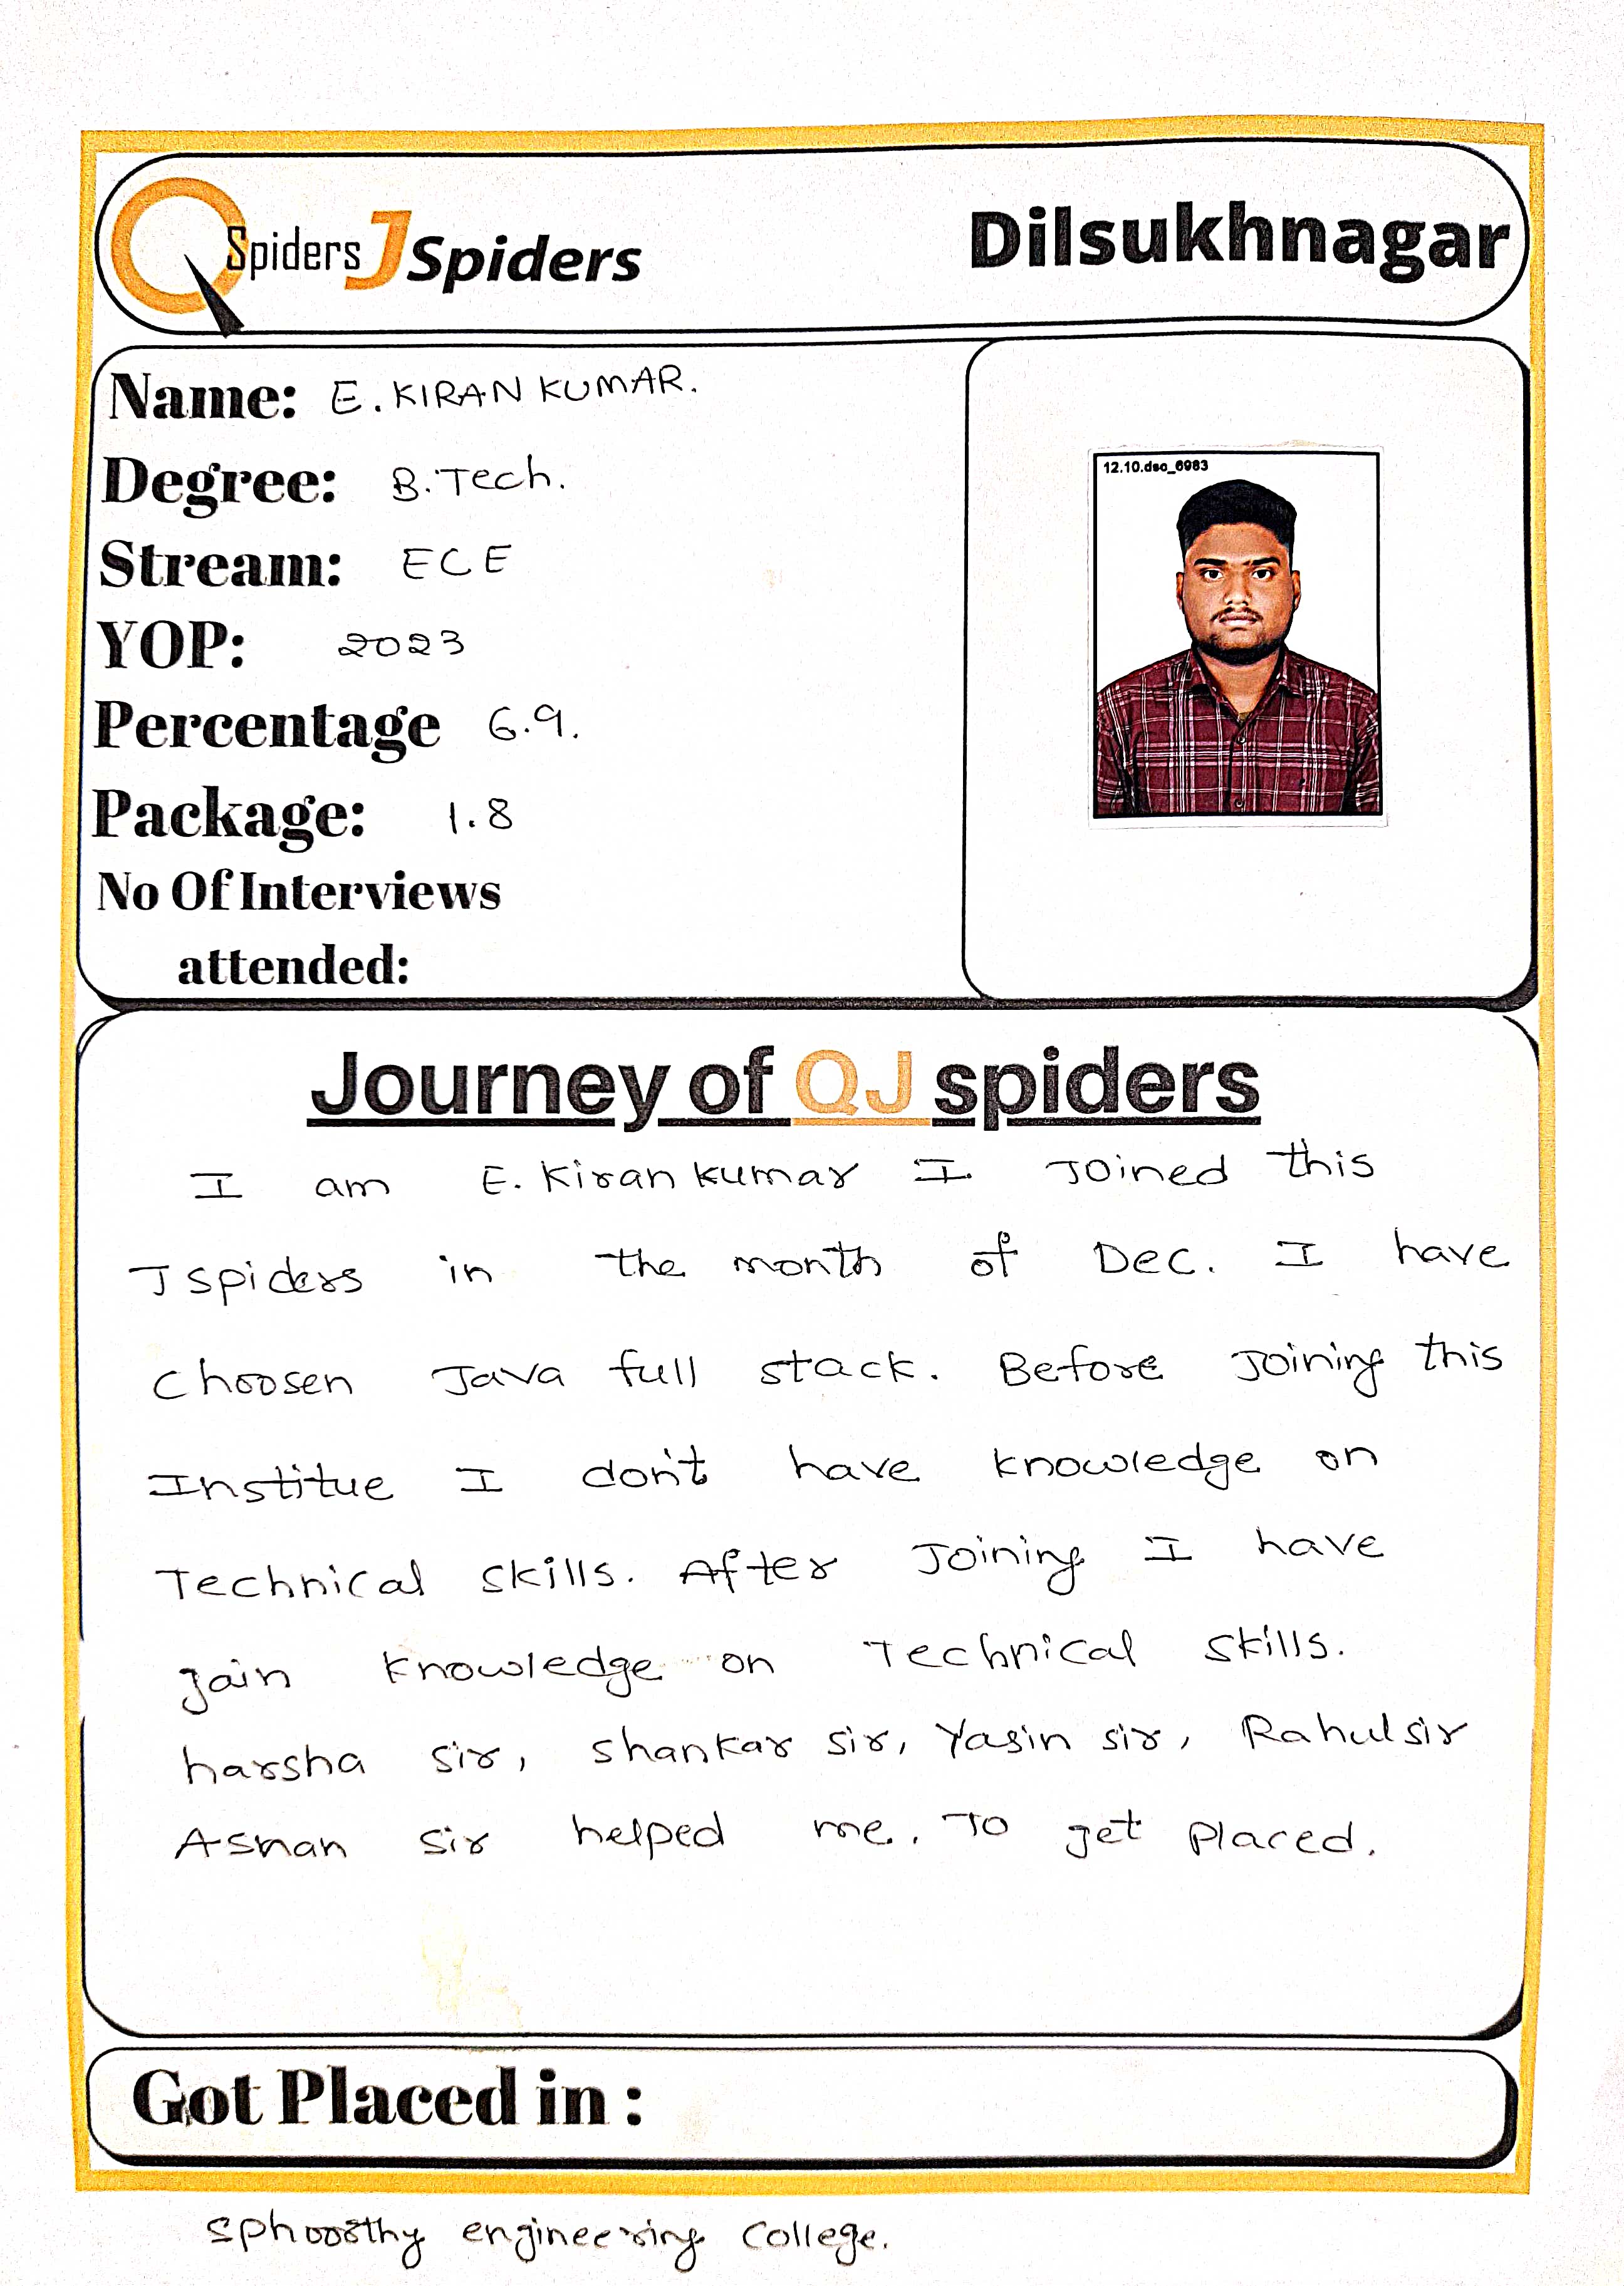 QSpiders JSpiders
Dilsukhnagar
Name: E. KIRAN KUMAR.
Degree: B.Tech.
Stream: ECE
YOP: 2023
Percentage 6.9.
Package: 1.8
No Of Interviews
attended:
12.10.dsc_6983
Journey of QJ spiders
I am E. Kiran kumar I Joined this
Jspiders in the month of Dec. I have
choosen Java full stack. Before Joining this
Institue I don't have knowledge on
Technical skills. After Joining I have
gain knowledge on Technical skills.
harsha sir, shankar sir, Yasin sir, Rahul sir
sir helped me. To get placed.
Got Placed in :
Sphoorthy engineering College.